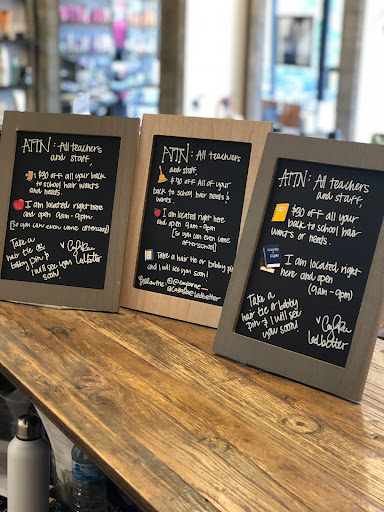 ATTN: All teachers
and staff,
$30 off all your back
to school hair wants
and needs.
I am located right here
and open 9am - 9pm
[so you can even come afterschool]
Take a
hair tie &
bobby pin &
I will see you
soon!
Ledbetter
ATTN: All teachers
and staff,
$30 off All of your
back to school hair wants &
needs
I am located right here
and open 9am - 9pm
[so you can even come
afterschool]
Take a hair tie or bobby pin
and I will see you soon!
ATTN: All teachers
and staff,
$30 off all your
back to school hair
wants or needs.
I am located right
here and open
(9am - 9pm)
Take a
hair tie or bobby
pin & I will see
you soon!
Ledbetter